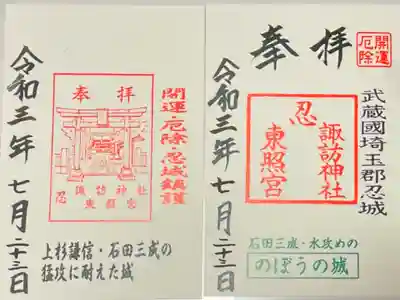 奉拝
開運・厄除・忍城鎮護
諏訪神社
忍
東照宮
令和三年七月二十三日
上杉謙信・石田三成の
猛攻に耐えた城
奉拝
開運
厄除
武蔵國埼玉郡忍城
忍
諏訪神社
東照宮
令和三年七月二十三日
石田三成・水攻めの
のぼうの城